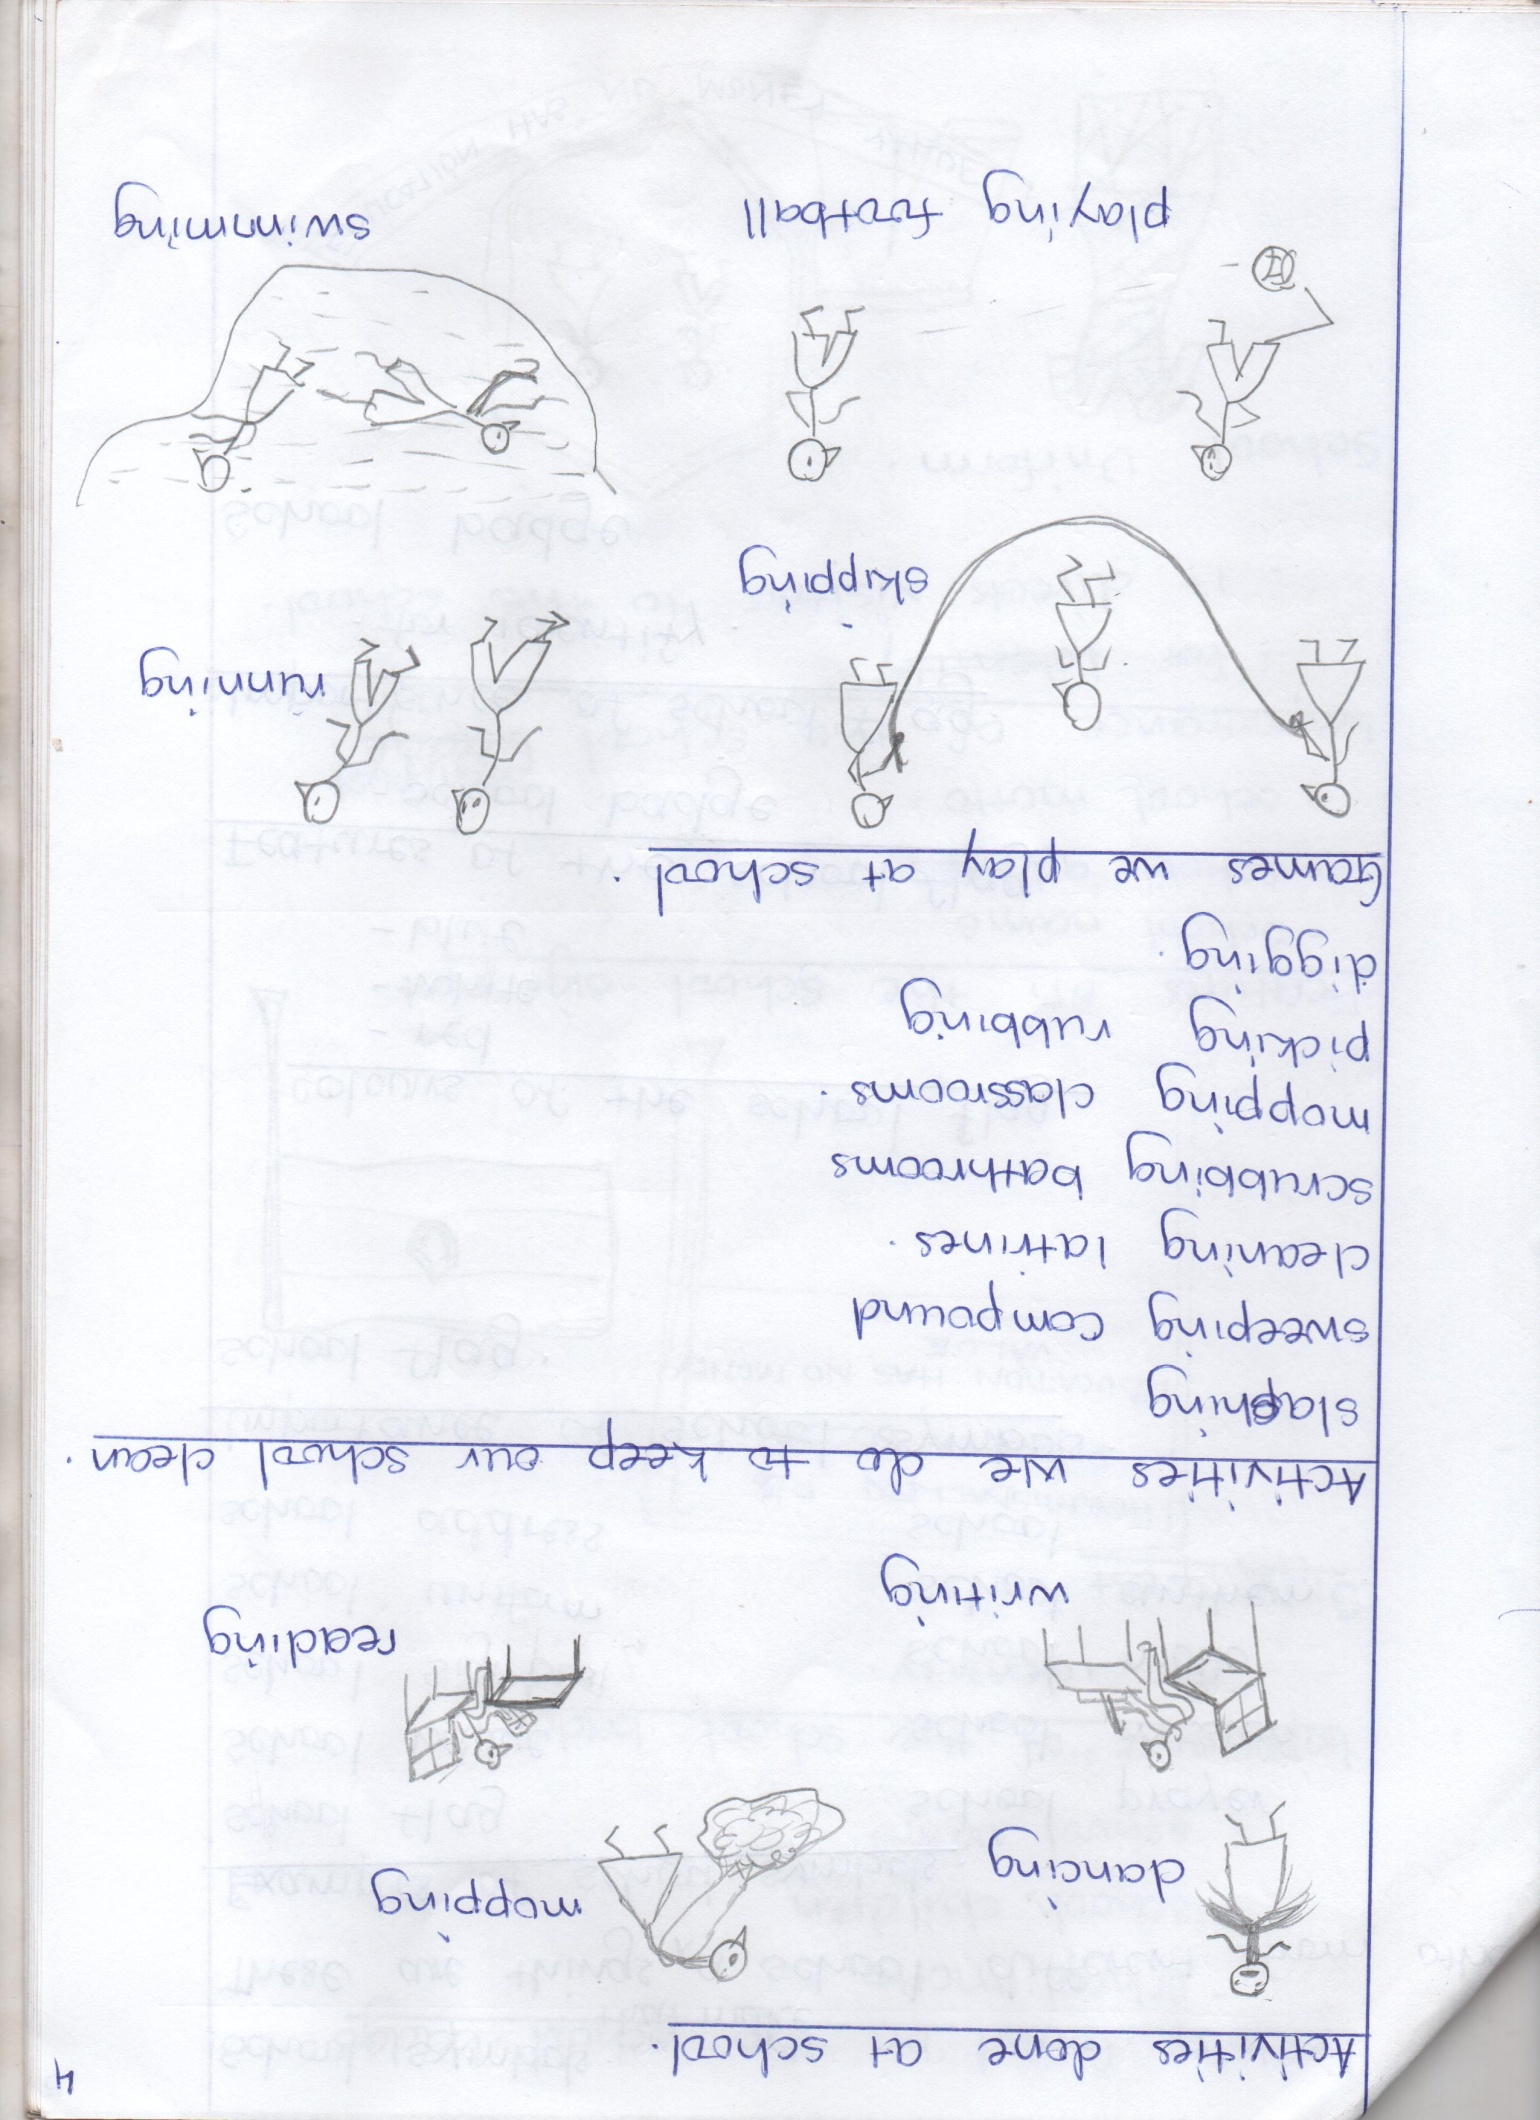 4
Activities done at school.
dancing
mopping
writing
reading
Activities we do to keep our school clean.
slashing
sweeping compound
cleaning latrines.
scrubbing bathrooms
mopping classrooms.
picking rubbing
digging.
Games we play at school.
skipping
running
playing football
swimming